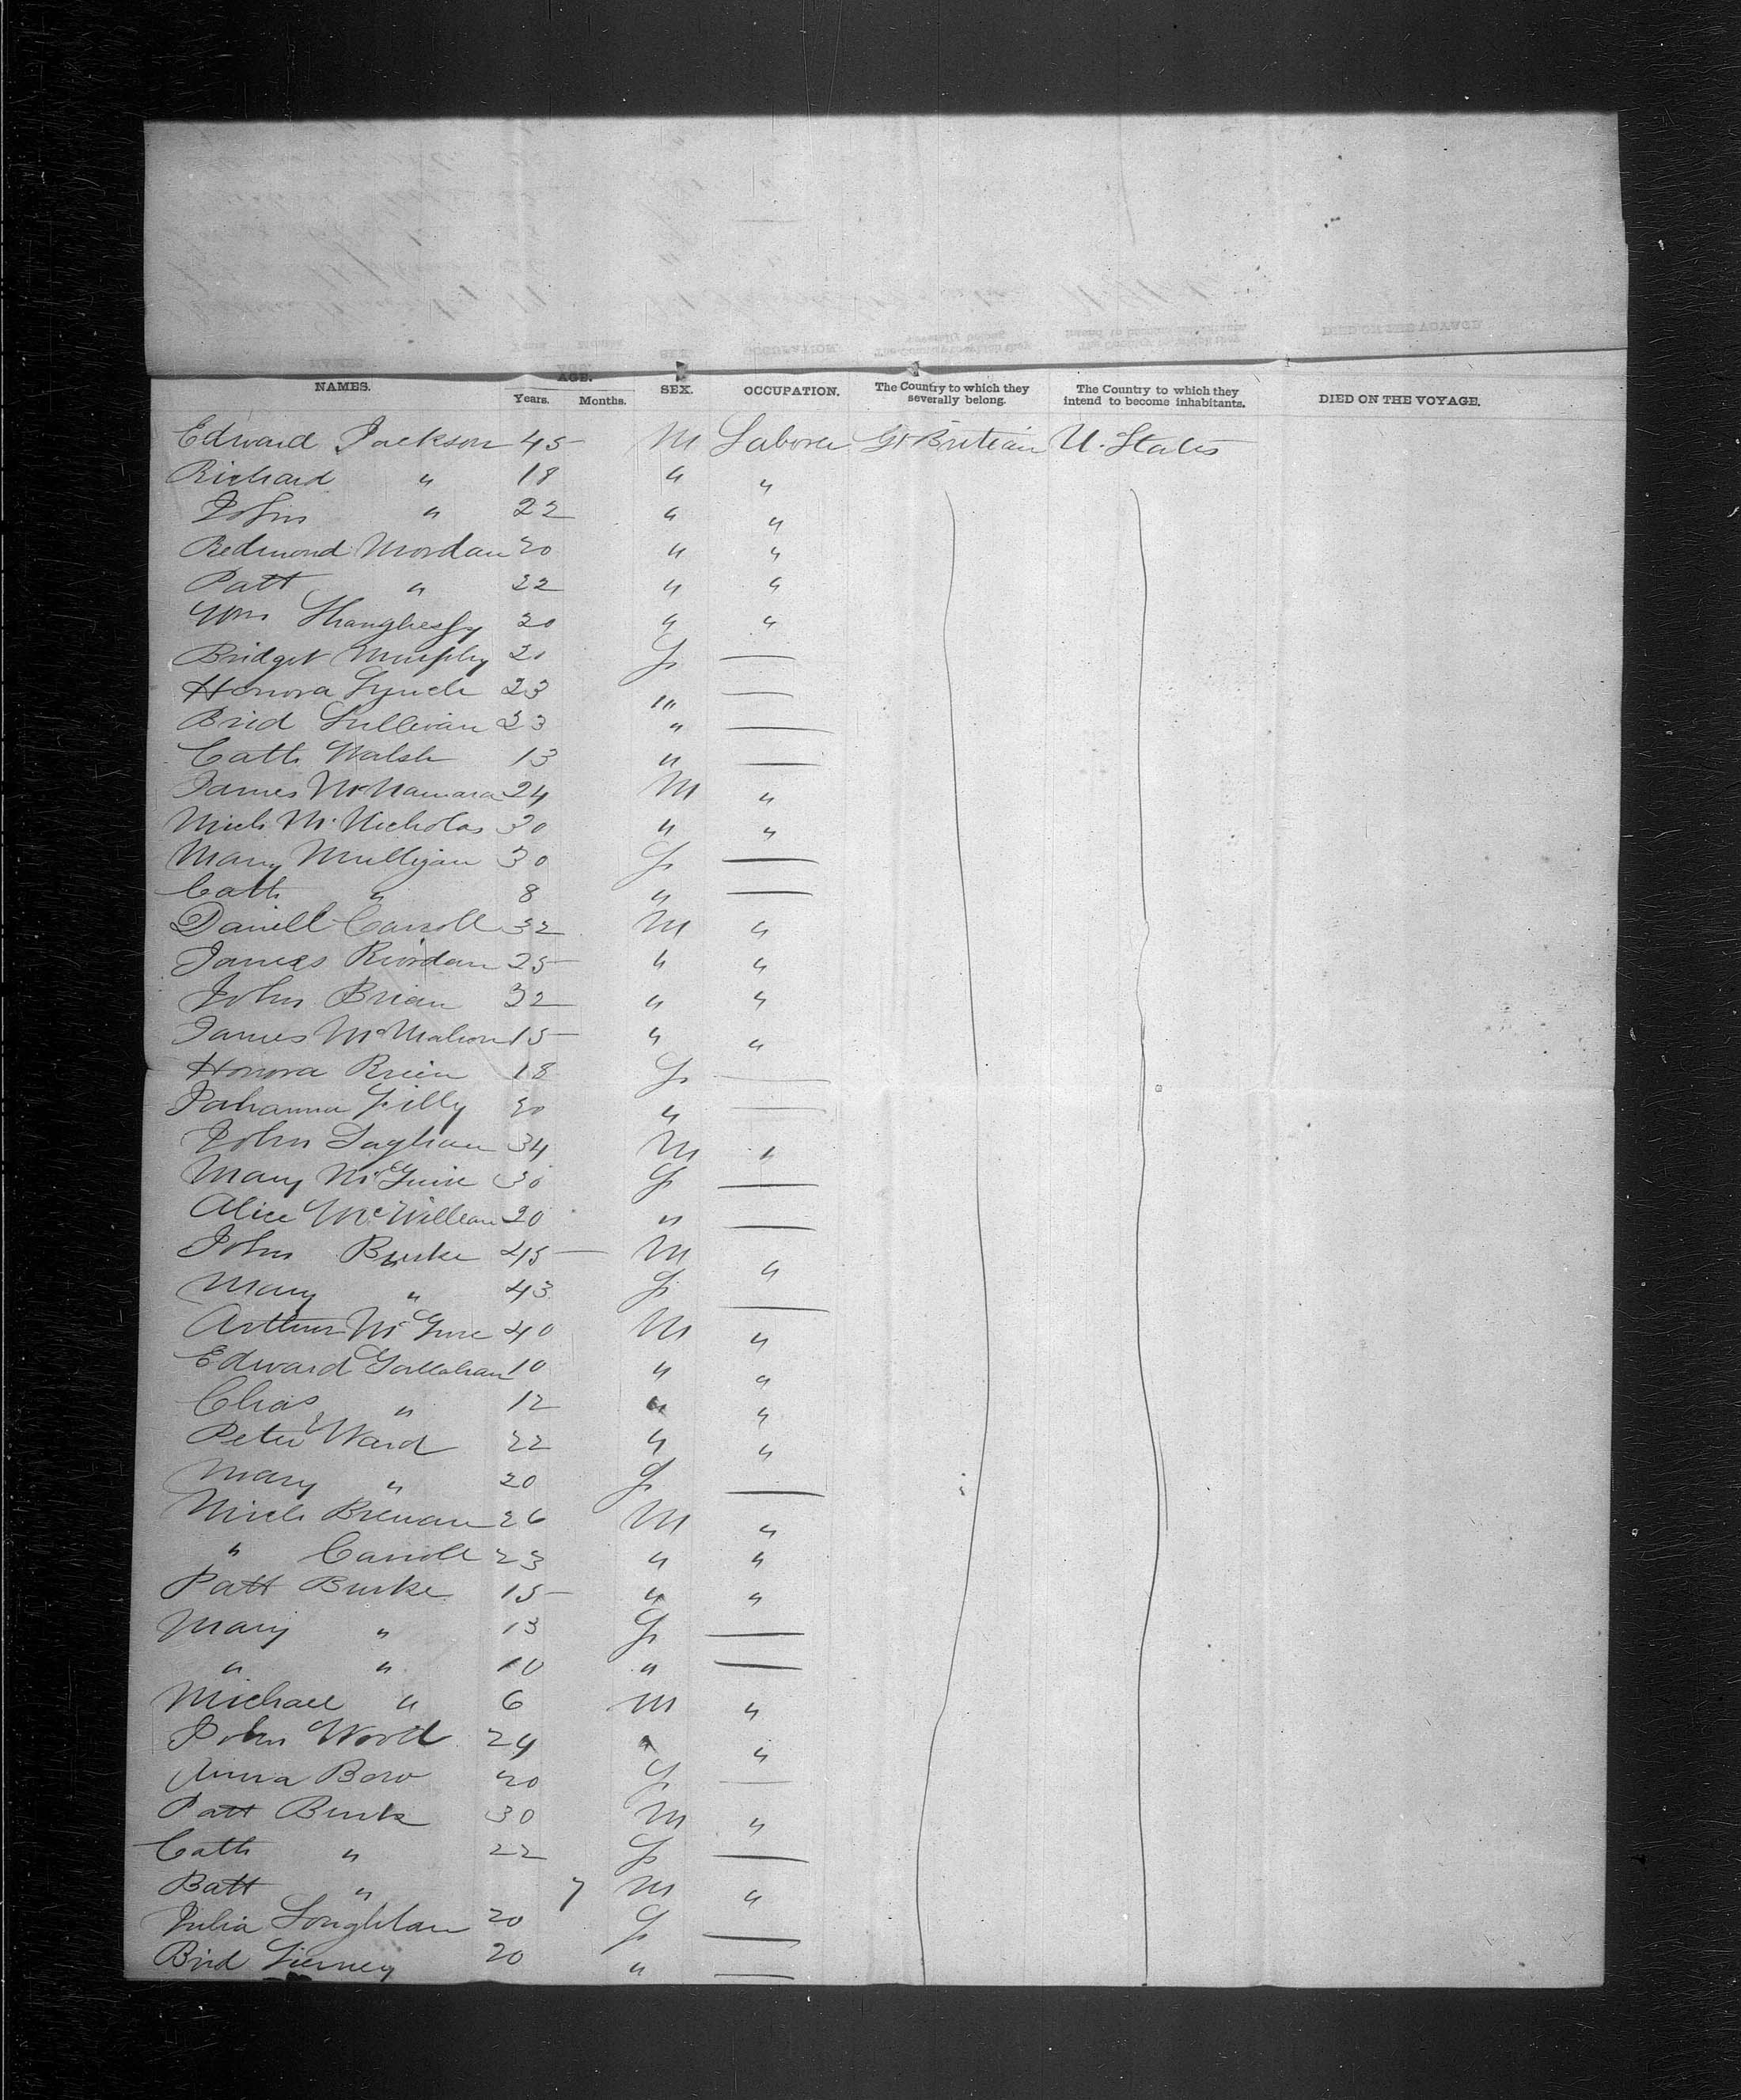 NAMES. AGE. Years. Months. SEX. OCCUPATION. The Country to which they severally belong. The Country to which they intend to become inhabitants. DIED ON THE VOYAGE.
Edward Jackson 45 M Laborer Gt Britain U. States
Richard " 18 " "
John " 22 " "
Redmond Mordan 20 " "
Patt " 22 " "
Wm 20 " "
Bridget Murphy 21 F —
Honora Lynch 23 " —
Brid Sullivan 23 " —
Cath Walsh 13 " —
James McNamara 24 M "
Mich McNicholas 30 " "
Mary Mulligan 30 F —
Cath " 8 " —
Daniell Carroll 32 M "
James Riordan 25 " "
John Brian 32 " "
James McMahon 15 " "
Honora Brien 18 F —
Johanna Lilly 20 " —
John 34 M "
Mary McGuire 30 F —
Alice McWilleam 20 " —
John Burke 45 M "
Mary " 43 F —
Arthur McGuire 40 M "
Edward Gallahan 10 " "
Chas " 12 " "
Peter Ward 22 " "
Mary " 20 F —
Mich Brenan 26 M "
" Carroll 23 " "
Patt Burke 15 " "
Mary " 13 F —
" " 10 " —
Michael " 6 M "
John Wood 24 " "
Anna Bow 20 F —
Patt Burk 30 M "
Cath " 22 F —
Batt " 7 M "
Julia Loughlan 20 F —
Brid Tierney 20 " —